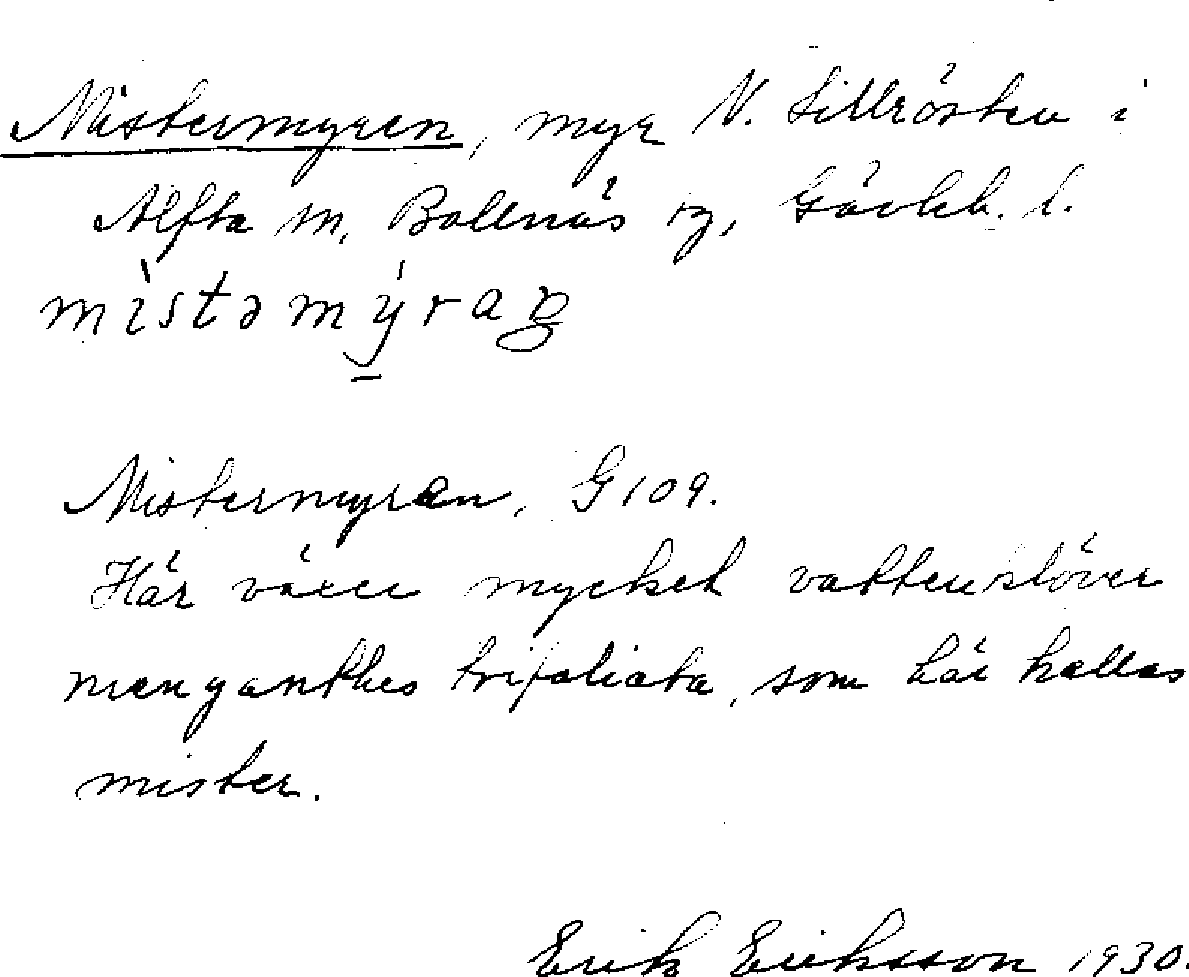 Mistermyren, myr N. Lillrösten i
Alfta sn, Bollnäs tg, Gävleb. l.
mistəmýrag
Mistermyran, G 109.
Här växer mycket vattenklöver
menyanthes trifoliata, som här kallas
mister.
Erik Eriksson 1930.